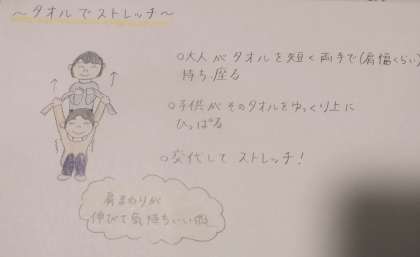 ～タオルでストレッチ～
○大人がタオルを短く両手で(肩幅くらい)
持ち座る
○子供がそのタオルをゆっくり上に
ひっぱる
○交代してストレッチ!
肩まわりが
伸びて気持ちいい